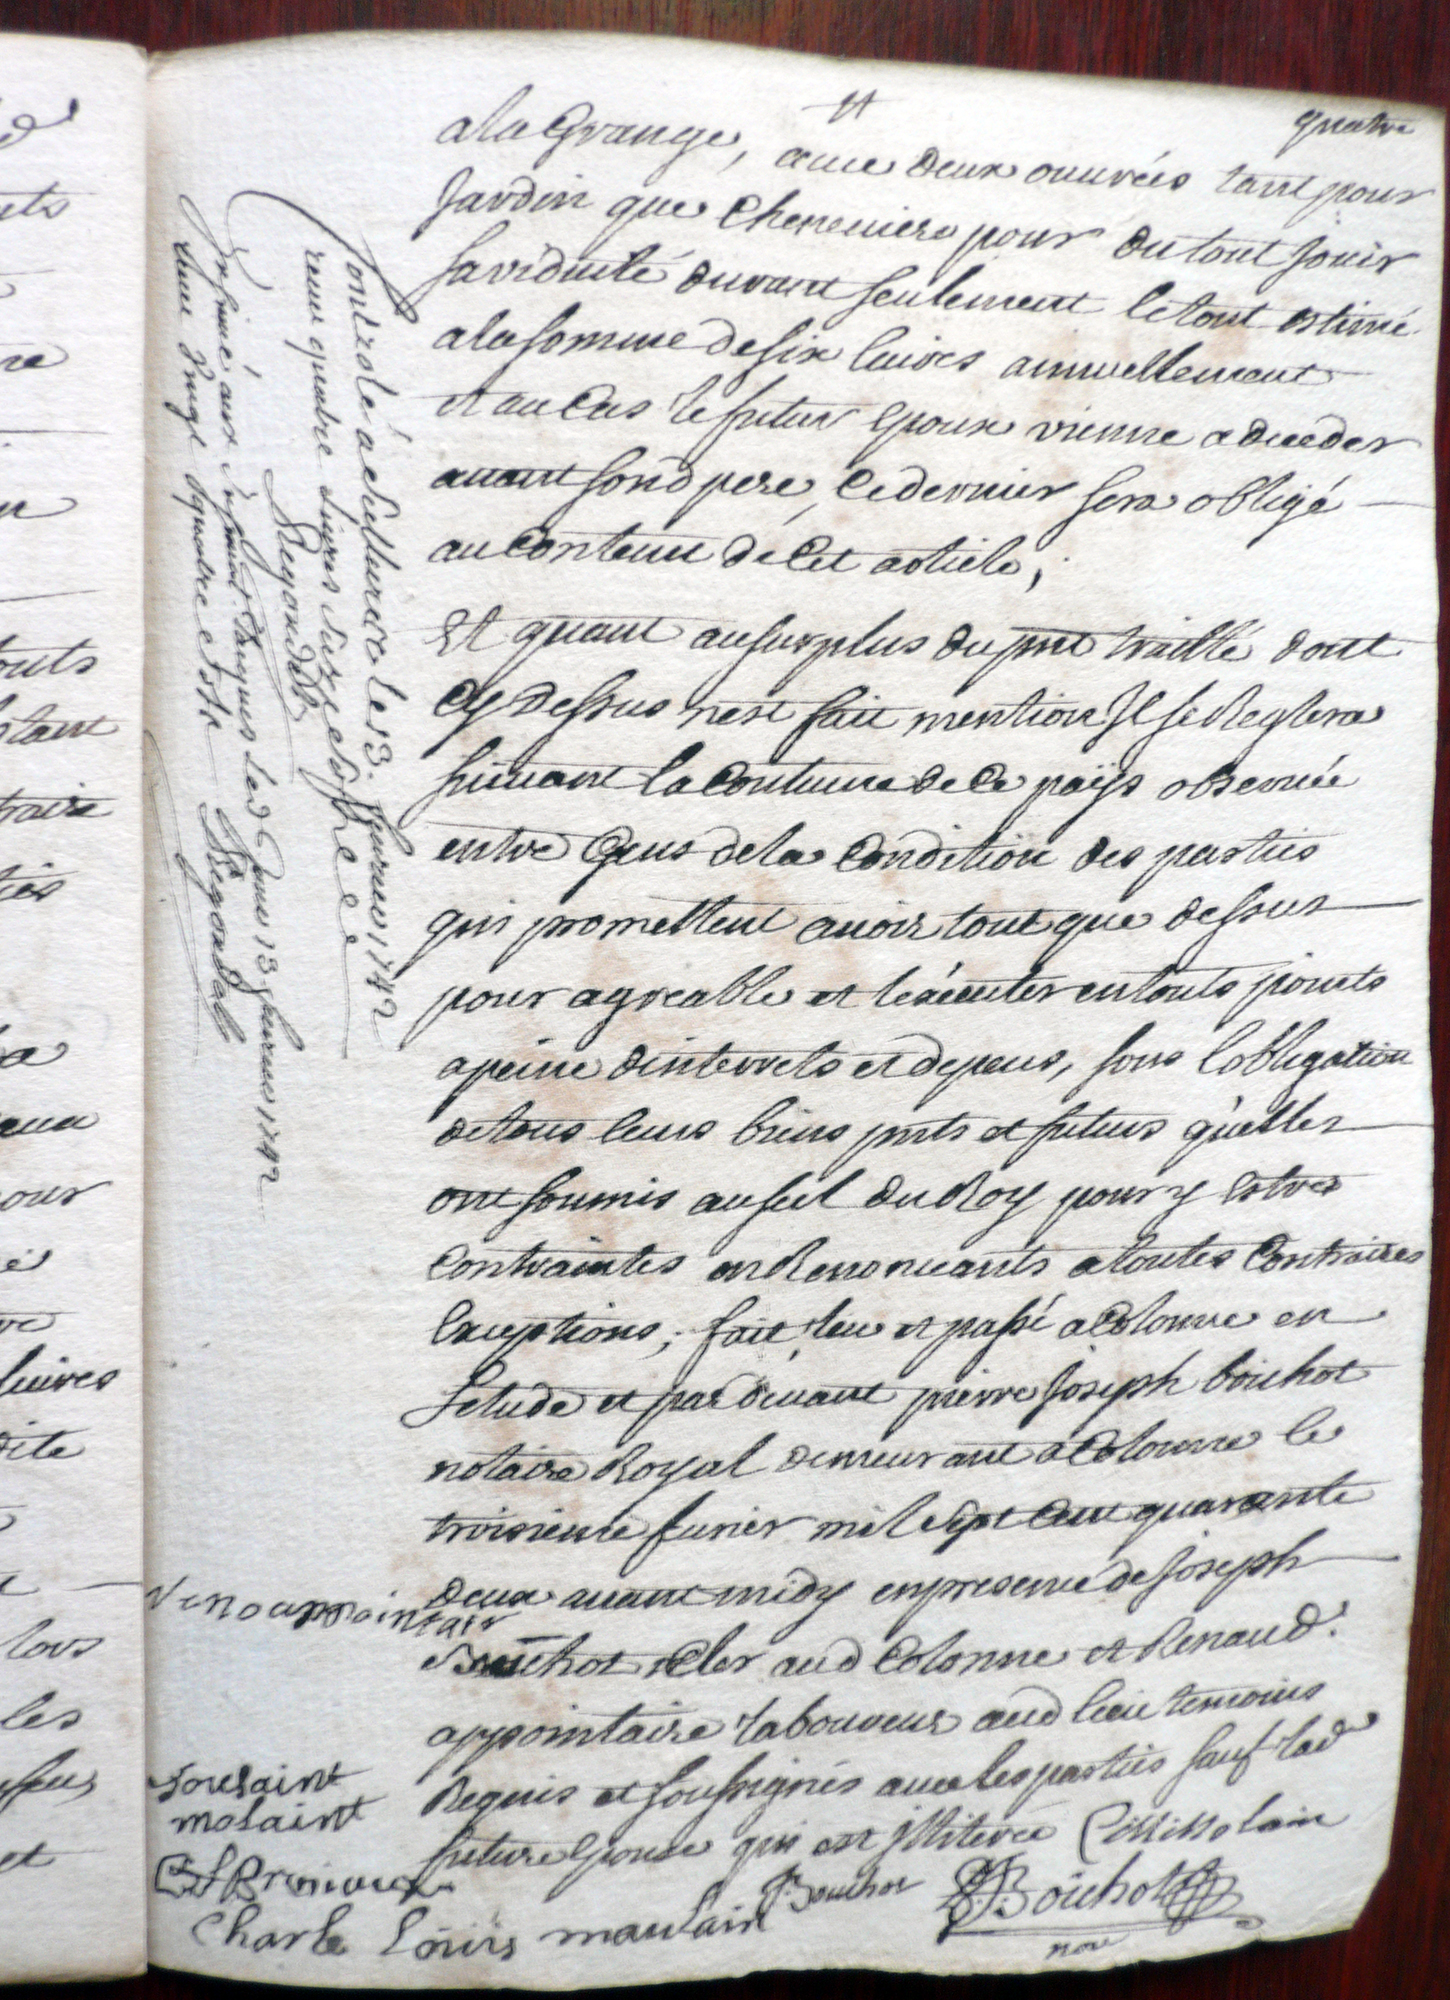 quatre
a la Grange, auec deux ouurées tant pour
Jardin que Cheneuiere pour du tout Jouir
sa viduité durant seulement le tout estimé
a la somme de six liures annuellement
et au Cas le futur Epoux vienne a deceder
auant sond pere, Ce dernier sera obligé
au Contenu de Cet article;
Et quant au surplus du pnt traitté dont
Cy Dessus nest fait mention Il se Reglera
suiuant la Coutume de Ce païs obseruée
entre Gens de la Condition des parties
qui promettent auoir tout que dessus
pour agreable et lexecuter en touts points
a peine dinterrets et depens, sous lobligation
de tous leurs biens pnts et futurs quelles
ont soumis au seel du Roy pour y Estre
Contraintes en Renoncants a toutes Contraires
Exceptions; fait, leu et passé a Colonne en
letude et par deuant pierre Joseph boichot
notaire Royal demeurant a Colonne le
troisieme feurier mil sept Cent quarante
deux auant midy en presence de Joseph
Bouchot Cler aud Colonne et Renaud
appointaire laboureur aud lieu temoins
Requis et soussignés auec les parties sauf lad
future Epouse qui est illiterée
JBouchot PJBoichot
not
Controlé a Sellieres le 13. feurier 1742
receu quatre liures
Regondab
Insinué aux Led Jour 13 feurier 1742
Regondab
renoappointair
tousaint
molaint
Charle Louis maulain